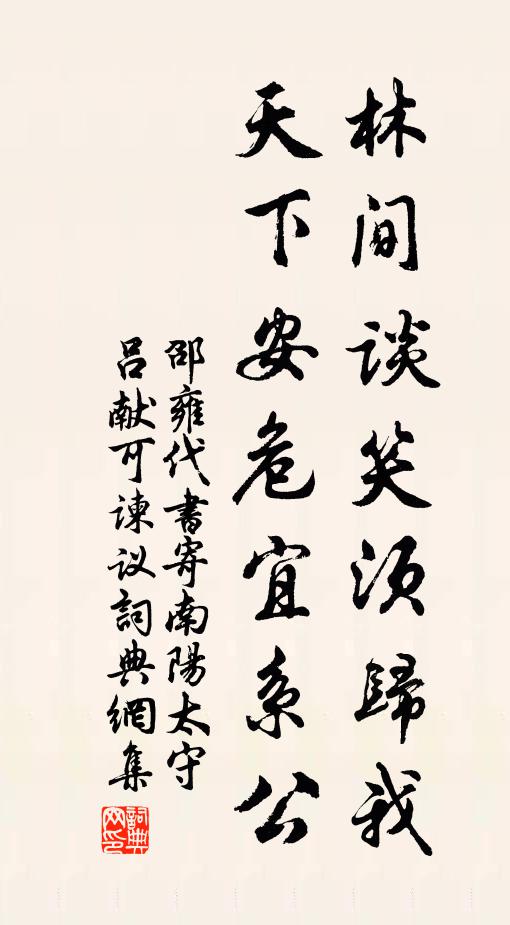 林间谈笑须歸我
天下安危宜系公
邵雍代書寄南陽太守
吕献可諫议詞典網集
詞典
网印